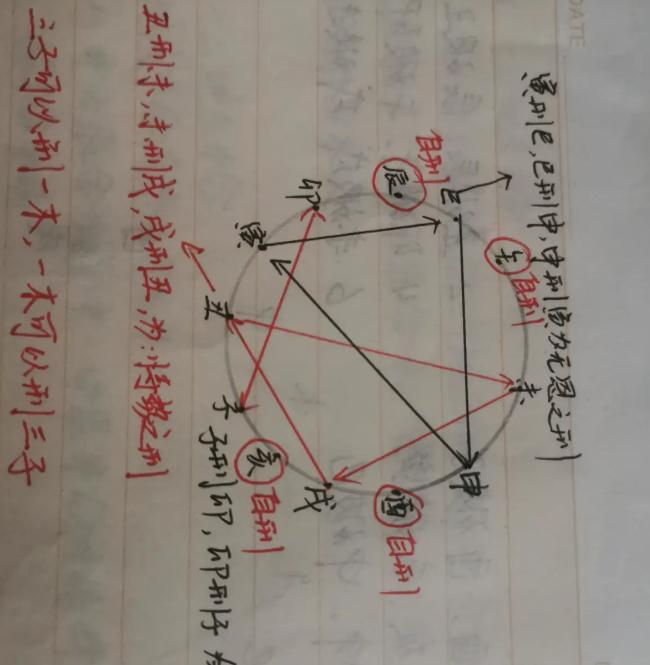 DATE
寅刑巳,巳刑申,申刑寅为无恩之刑
午 自刑
未
巳
自刑
申
辰
酉 自刑
卯
戌
寅
亥 自刑
丑
子
子刑卯,卯刑子 为
丑刑未,未刑戌,戌刑丑,为:恃势之刑
三子可以刑一木,一木可以刑三子